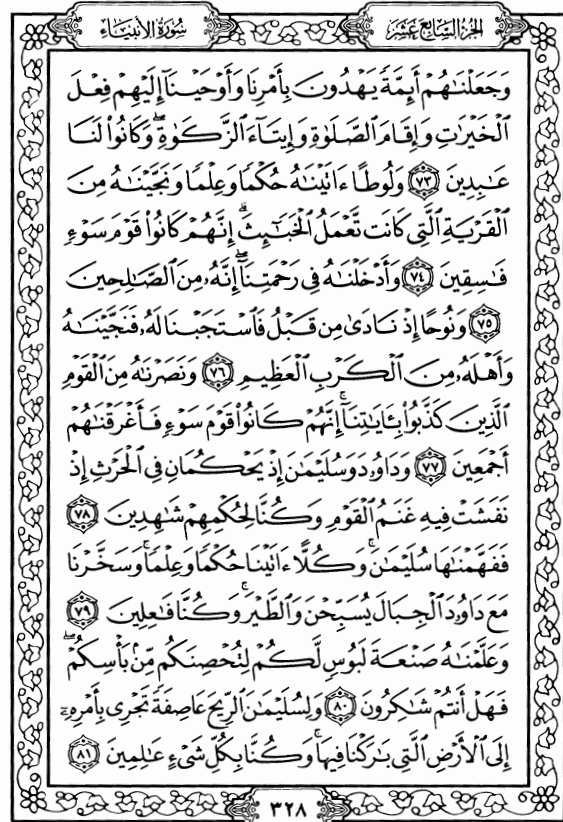 الجزء السابع عشر
سورة الأنبياء
وَجَعَلْنَٰهُمْ أَئِمَّةً يَهْدُونَ بِأَمْرِنَا وَأَوْحَيْنَآ إِلَيْهِمْ فِعْلَ
ٱلْخَيْرَٰتِ وَإِقَامَ ٱلصَّلَوٰةِ وَإِيتَآءَ ٱلزَّكَوٰةِ ۖ وَكَانُوا۟ لَنَا
عَٰبِدِينَ ۝٧٣ وَلُوطًا ءَاتَيْنَٰهُ حُكْمًا وَعِلْمًا وَنَجَّيْنَٰهُ مِنَ
ٱلْقَرْيَةِ ٱلَّتِى كَانَت تَّعْمَلُ ٱلْخَبَٰٓئِثَ ۗ إِنَّهُمْ كَانُوا۟ قَوْمَ سَوْءٍ
فَٰسِقِينَ ۝٧٤ وَأَدْخَلْنَٰهُ فِى رَحْمَتِنَآ ۖ إِنَّهُۥ مِنَ ٱلصَّٰلِحِينَ
۝٧٥ وَنُوحًا إِذْ نَادَىٰ مِن قَبْلُ فَٱسْتَجَبْنَا لَهُۥ فَنَجَّيْنَٰهُ
وَأَهْلَهُۥ مِنَ ٱلْكَرْبِ ٱلْعَظِيمِ ۝٧٦ وَنَصَرْنَٰهُ مِنَ ٱلْقَوْمِ
ٱلَّذِينَ كَذَّبُوا۟ بِـَٔايَٰتِنَآ ۚ إِنَّهُمْ كَانُوا۟ قَوْمَ سَوْءٍ فَأَغْرَقْنَٰهُمْ
أَجْمَعِينَ ۝٧٧ وَدَاوُۥدَ وَسُلَيْمَٰنَ إِذْ يَحْكُمَانِ فِى ٱلْحَرْثِ إِذْ
نَفَشَتْ فِيهِ غَنَمُ ٱلْقَوْمِ وَكُنَّا لِحُكْمِهِمْ شَٰهِدِينَ ۝٧٨
فَفَهَّمْنَٰهَا سُلَيْمَٰنَ ۚ وَكُلًّا ءَاتَيْنَا حُكْمًا وَعِلْمًا ۚ وَسَخَّرْنَا
مَعَ دَاوُۥدَ ٱلْجِبَالَ يُسَبِّحْنَ وَٱلطَّيْرَ ۚ وَكُنَّا فَٰعِلِينَ ۝٧٩
وَعَلَّمْنَٰهُ صَنْعَةَ لَبُوسٍ لَّكُمْ لِتُحْصِنَكُم مِّنۢ بَأْسِكُمْ ۖ
فَهَلْ أَنتُمْ شَٰكِرُونَ ۝٨٠ وَلِسُلَيْمَٰنَ ٱلرِّيحَ عَاصِفَةً تَجْرِى بِأَمْرِهِۦٓ
إِلَى ٱلْأَرْضِ ٱلَّتِى بَٰرَكْنَا فِيهَا ۚ وَكُنَّا بِكُلِّ شَىْءٍ عَٰلِمِينَ ۝٨١
٣٢٨